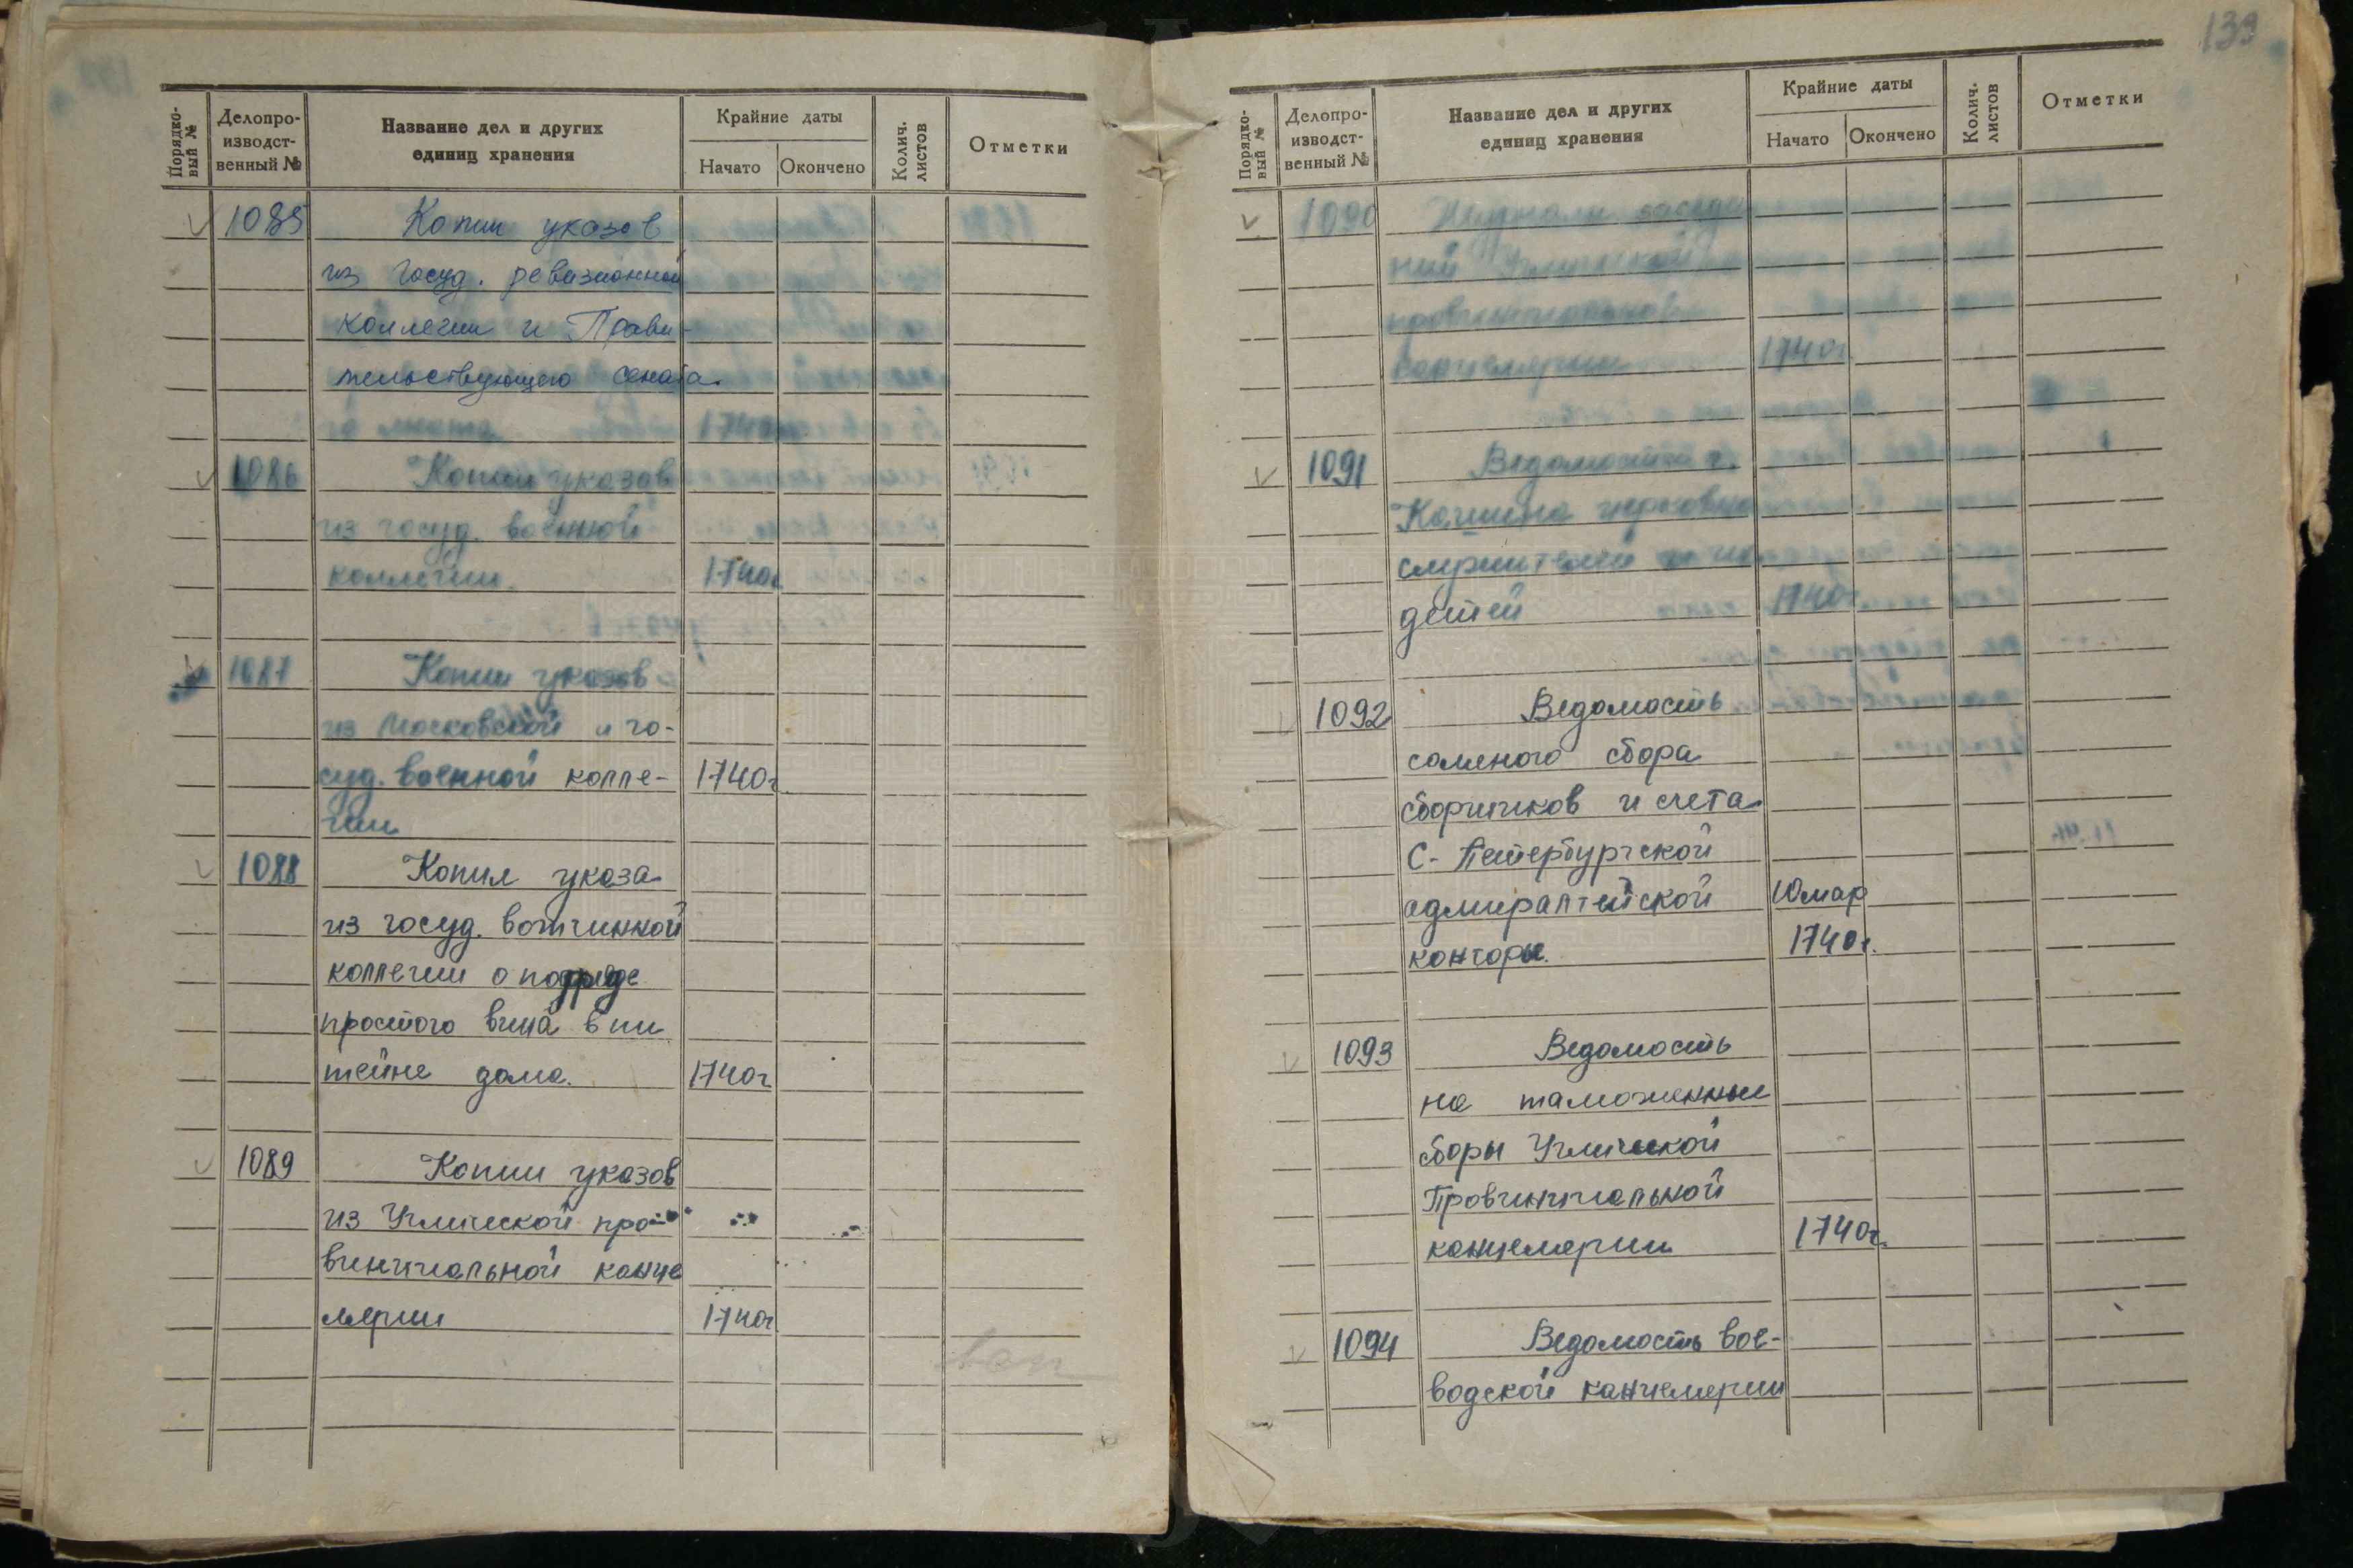 Порядко-
вый №
Делопро-
изводст-
венный №
Название дел и других
единиц хранения
Крайние даты
Начато
Окончено
Колич.
листов
Отметки
1085 Копии указов
из госуд. ревизионной
коллегии и Прави-
тельствующего сената
1740г
1086 Копии указов
из госуд. военной
коллегии. 1740г
1087 Копии указов
из Московской и го-
суд. военной колле- 1740г
гии
1088 Копия указа
из госуд. вотчинной
коллегии о подряде
простого вина в пи
тейне дома. 1740г
1089 Копии указов
из Угличской про
винциальной канце
лярии 1740г
139
Порядко-
вый №
Делопро-
изводст-
венный №
Название дел и других
единиц хранения
Крайние даты
Начато
Окончено
Колич.
листов
Отметки
1090 Журналы заседа
ний Угличской
провинциальной
канцелярии 1740г
1091 Ведомость г.
Кашина церковно
служителей и их
детей 1740г
1092 Ведомость
соляного сбора
сборщиков и счета
С-Петербургской
адмиралтейской 10 мар
конторы. 1740г.
1093 Ведомость
на таможенные
сборы Угличской
Провинциальной
канцелярии 1740г.
1094 Ведомость вое-
водской канцелярии